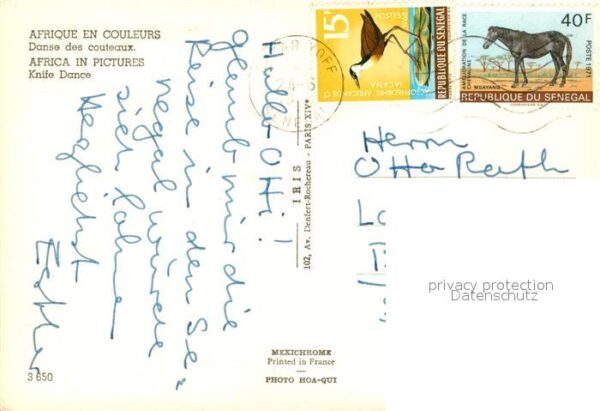 AFRIQUE EN COULEURS
Danse des couteaux.
AFRICA IN PICTURES
Knife Dance
Hallo Otti!
Glaub mir die
Reise in den Se-
negal würde
sich lohnen
Herrn
Otto Rath
IRIS
102, Av. Denfert-Rochereau - PARIS XIVe
15F
POSTES
REPUBLIQUE DU SENEGAL
ACTOPHILORNIS AFRICANUS
JACANA
40F
POSTE 1971
AMELIORATION DE LA RACE
CHEVALINE
MBAYANG
REPUBLIQUE DU SENEGAL
privacy protection
Datenschutz
MEXICHROME
Printed in France
PHOTO HOA-QUI
3 650